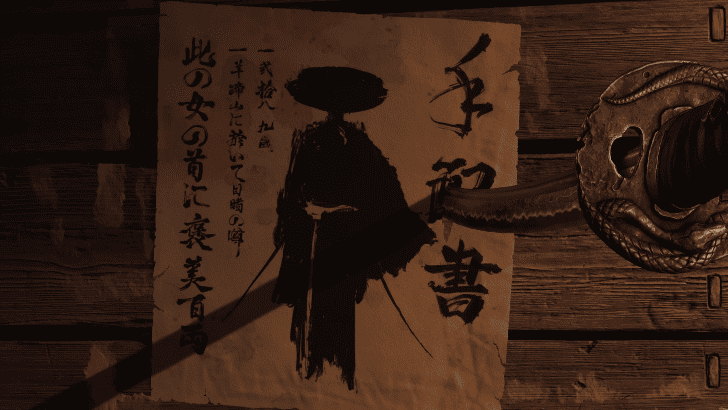 手配書
一 弐拾八 九歳
一 羊蹄山に於いて目
此の女の首に褒美百両